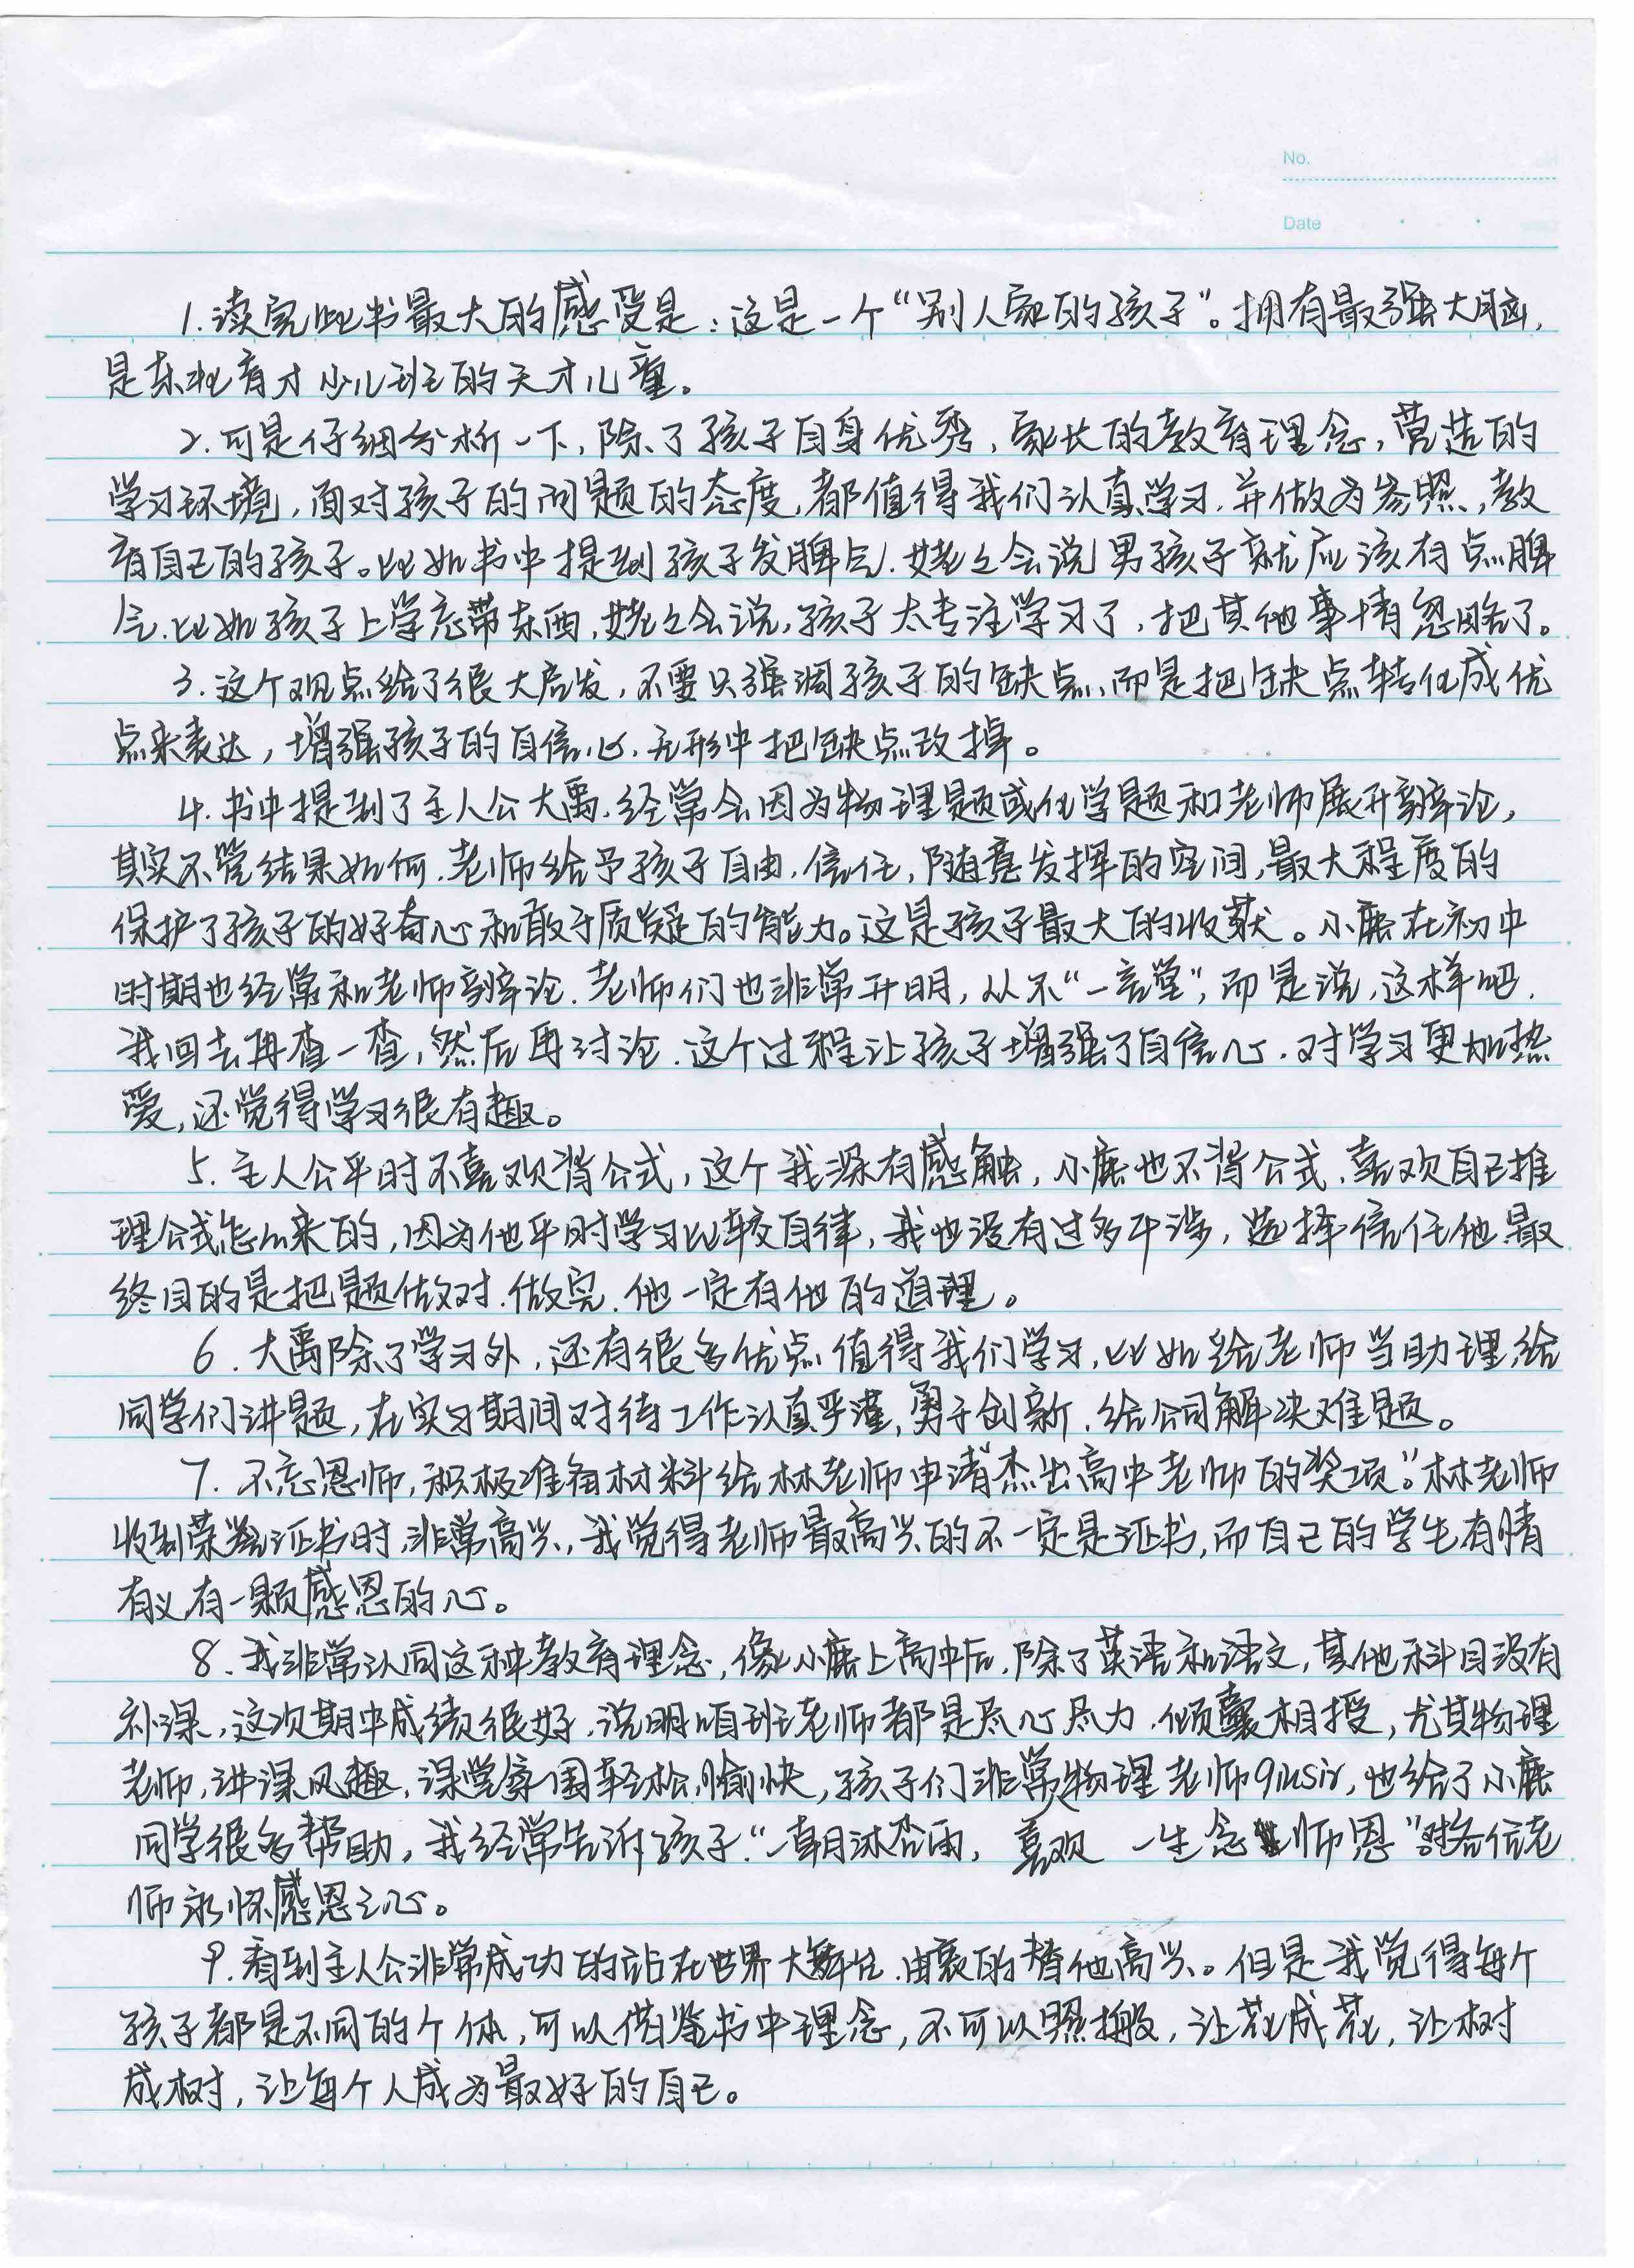 No.
Date
1.读完此书最大的感受是:这是一个“别人家的孩子”。拥有最强大脑,
是东北育才少儿班的天才儿童。
2.可是仔细分析一下,除了孩子自身优秀,家长的教育理念,营造的
学习环境,面对孩子的问题的态度,都值得我们认真学习.并做为参照,教
育自己的孩子。比如书中提到孩子发脾气.姥姥会说男孩子就应该有点脾
气.比如孩子上学忘带东西,姥姥会说,孩子太专注学习了,把其他事情忽略了。
3.这个观点给了很大启发,不要只强调孩子的缺点,而是把缺点转化成优
点来表达,增强孩子的自信心.无形中把缺点改掉。
4.书中提到了主人公大禹.经常会因为物理题或化学题和老师展开辩论,
其实不管结果如何.老师给予孩子自由.信任,随意发挥的空间,最大程度的
保护了孩子的好奇心和敢于质疑的能力。这是孩子最大的收获。小鹿在初中
时期也经常和老师辩论.老师们也非常开明,从不“一言堂”,而是说,这样吧.
我回去再查一查,然后再讨论.这个过程让孩子增强了自信心.对学习更加热
爱,还觉得学习很有趣。
5.主人公平时不喜欢背公式,这个我深有感触,小鹿也不背公式.喜欢自己推
理公式怎么来的,因为他平时学习比较自律,我也没有过多干涉,选择信任他.最
终目的是把题做对.做完.他一定有他的道理。
6.大禹除了学习外,还有很多优点值得我们学习,比如给老师当助理,给
同学们讲题,在实习期间对待工作认真严谨,勇于创新.给公司解决难题。
7.不忘恩师,积极准备材料给林老师申请“杰出高中老师的奖项”。林老师
收到荣誉证书时,非常高兴,我觉得老师最高兴的不一定是证书,而自己的学生有情
有义,有一颗感恩的心。
8.我非常认同这种教育理念,像小鹿上高中后.除了英语和语文,其他科目没有
补课,这次期中成绩很好.说明咱班老师都是尽心尽力.倾囊相授,尤其物理
老师,讲课风趣,课堂氛围轻松,愉快,孩子们非常物理老师qiusir,也给了小鹿
同学很多帮助,我经常告诉孩子“一朝沐杏雨, 喜欢 一生念师恩”对各位老
师永怀感恩之心。
9.看到主人公非常成功的站在世界大舞台.由衷的替他高兴。但是我觉得每个
孩子都是不同的个体,可以借鉴书中理念,不可以照搬,让花成花,让树
成树,让每个人成为最好的自己。